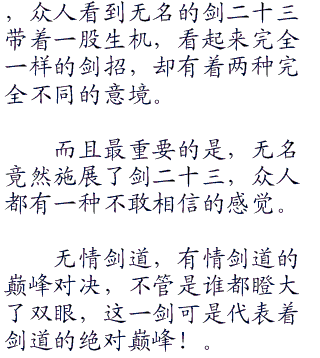 ，众人看到无名的剑二十三
带着一股生机，看起来完全
一样的剑招，却有着两种完
全不同的意境。
而且最重要的是，无名
竟然施展了剑二十三，众人
都有一种不敢相信的感觉。
无情剑道，有情剑道的
巅峰对决，不管是谁都瞪大
了双眼，这一剑可是代表着
剑道的绝对巅峰！。